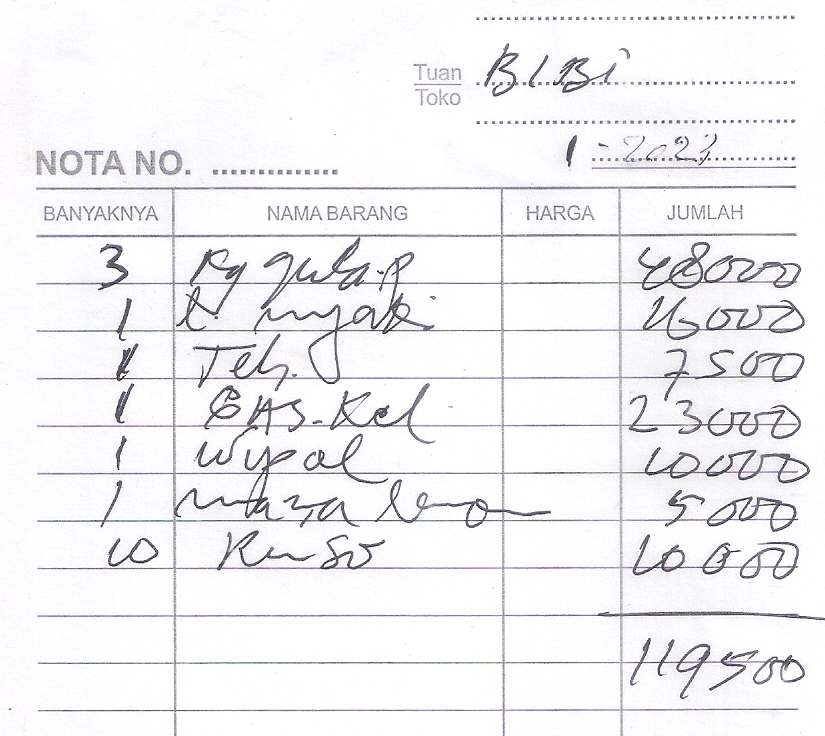 Tuan BIBi
Toko
1 - 2023
NOTA NO. ..............
BANYAKNYA NAMA BARANG HARGA JUMLAH
3 Kg gula.p 48000
1 L. minyak 16000
1 Teh. 7500
1 GAS-Kel 23000
1 Wipol 10000
1 5000
10 Rinso 10000
119500